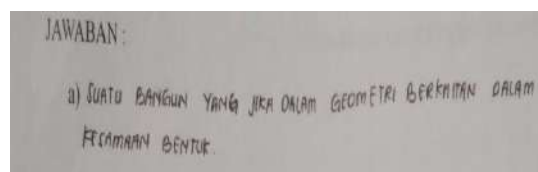 JAWABAN :
a) SUATU BANGUN YANG JIKA DALAM GEOMETRI BERKAITAN DALAM
KESAMAAN BENTUK.